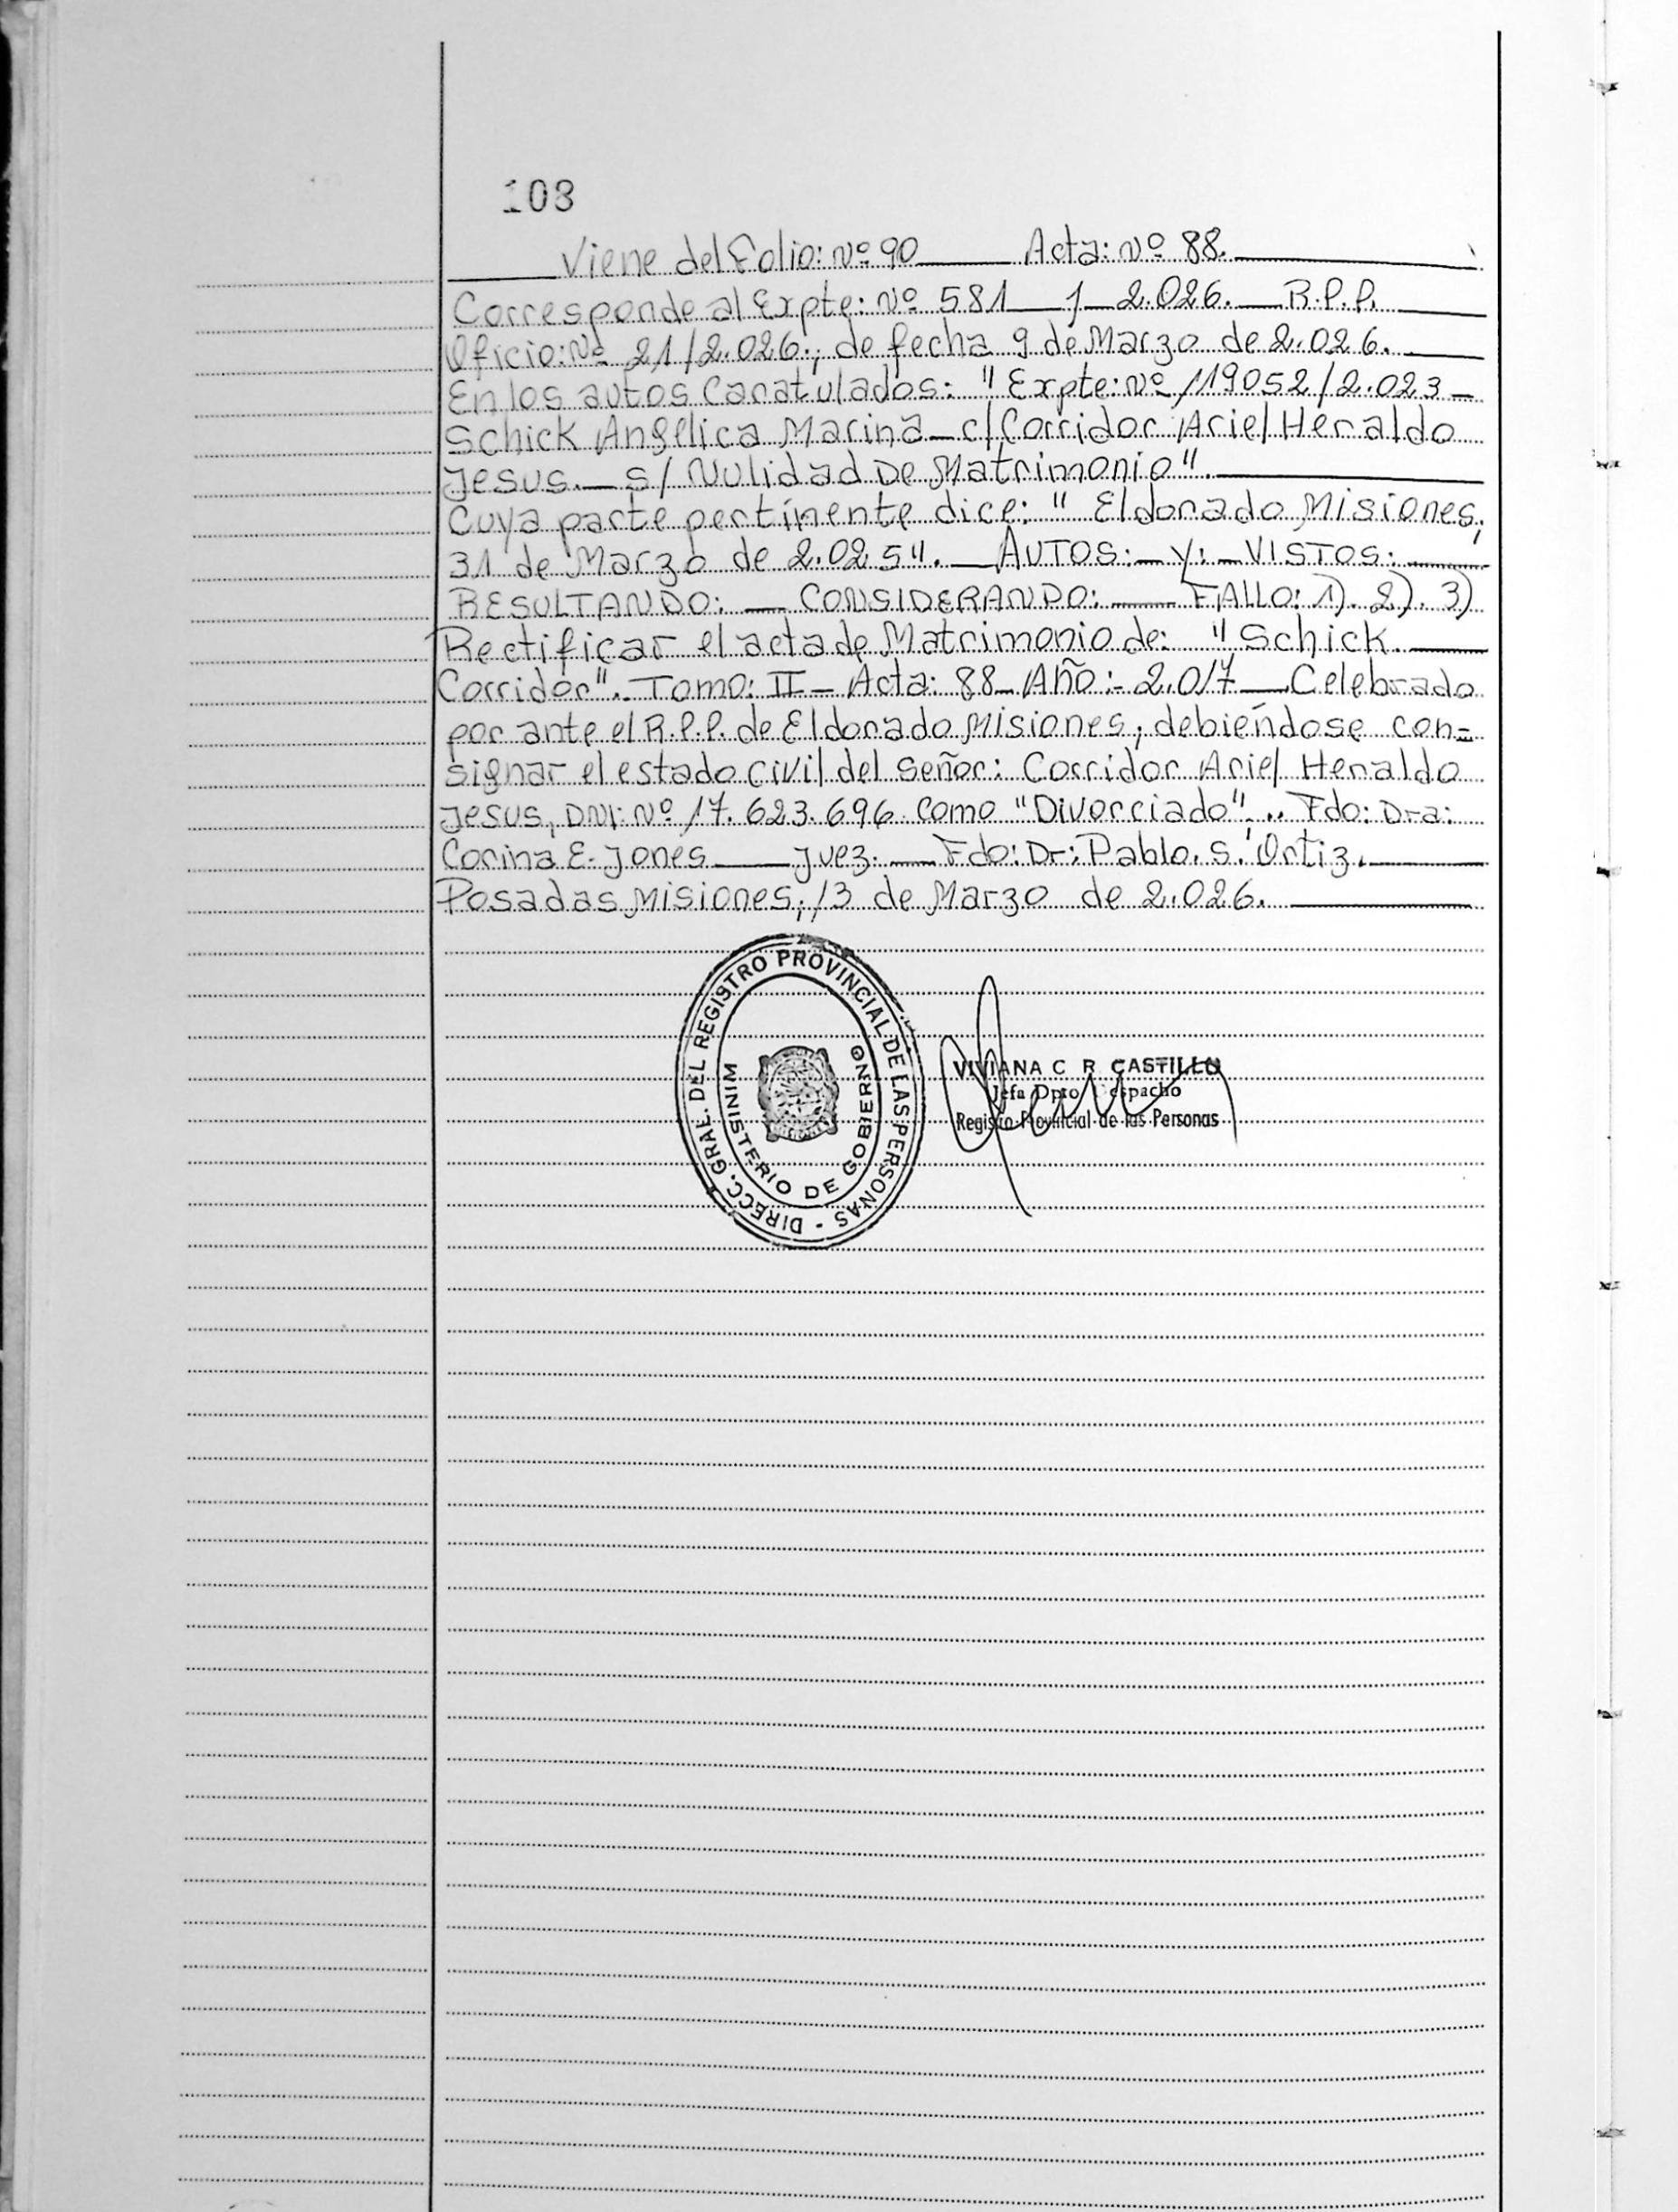 108
Viene del Folio: Nº 90 — Acta: Nº 88. —
Corresponde al Expte: Nº 581 — / — 2.026. — R.P.P.
Oficio: Nº 21/2.026., de fecha 9 de Marzo de 2.026. —
En los autos Caratulados: "Expte: Nº 119052/2.023 —
Schick Angelica Marina — c/ Corridor Ariel Heraldo
Jesus. — S/ Nulidad De Matrimonio". —
Cuya parte pertinente dice: " Eldorado Misiones,
31 de Marzo de 2.025". — AUTOS: — Y: — VISTOS: —
RESULTANDO: — CONSIDERANDO: — FALLO: 1). 2). 3)
Rectificar el acta de Matrimonio de: "Schick. —
Corridor". Tomo: II — Acta: 88 — Año: - 2.017 — Celebrado
por ante el R.P.P. de Eldorado Misiones, debiéndose con=
signar el estado civil del señor: Corridor Ariel Heraldo
Jesus, DNI: Nº 17.623.696 como "Divorciado". .. Fdo: Dra:
Corina E. Jones — Juez. — Fdo: Dr: Pablo. S. Ortiz. —
Posadas Misiones, 13 de Marzo de 2.026. —
DIRECC. GRAL. DEL REGISTRO PROVINCIAL DE LAS PERSONAS -
MINISTERIO DE GOBIERNO
VIVIANA C R CASTILLO
Jefa Dpto Despacho
Registro Provincial de las Personas